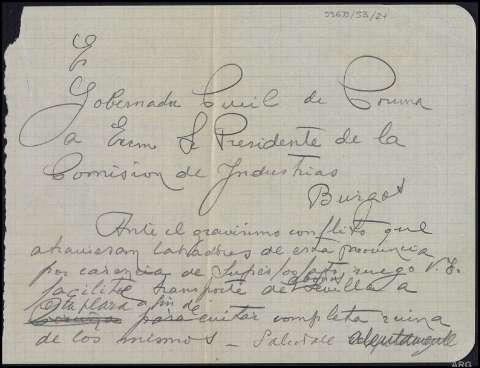 E
Gobernador Civil de Coruña
a Excmo Sr Presidente de la
Comision de Industrias
Burgos
Ante el gravisimo conflito que
atraviesan labradores de esta provincia
por carencia de superfosfato ruego V. E.
facilite transporte de abonos Sevilla a
esta plaza a fin de
para evitar completa ruina
de los mismos - Salúdale
ARG